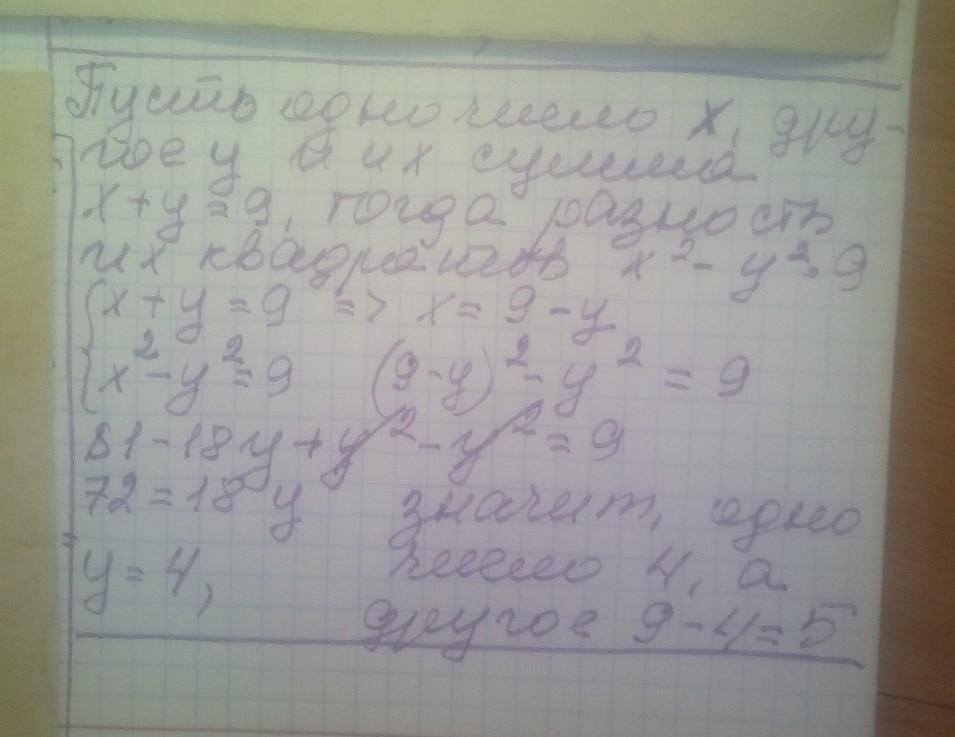 Пусть одно число x, дру-
гое y а их сумма
x+y=9, тогда разность
их квадратов x²-y²=9
{x+y=9 => x=9-y
{x²-y²=9 (9-y)²-y²=9
81-18y+y²-y²=9
72=18y значит, одно
y=4, число 4, а
другое 9-4=5